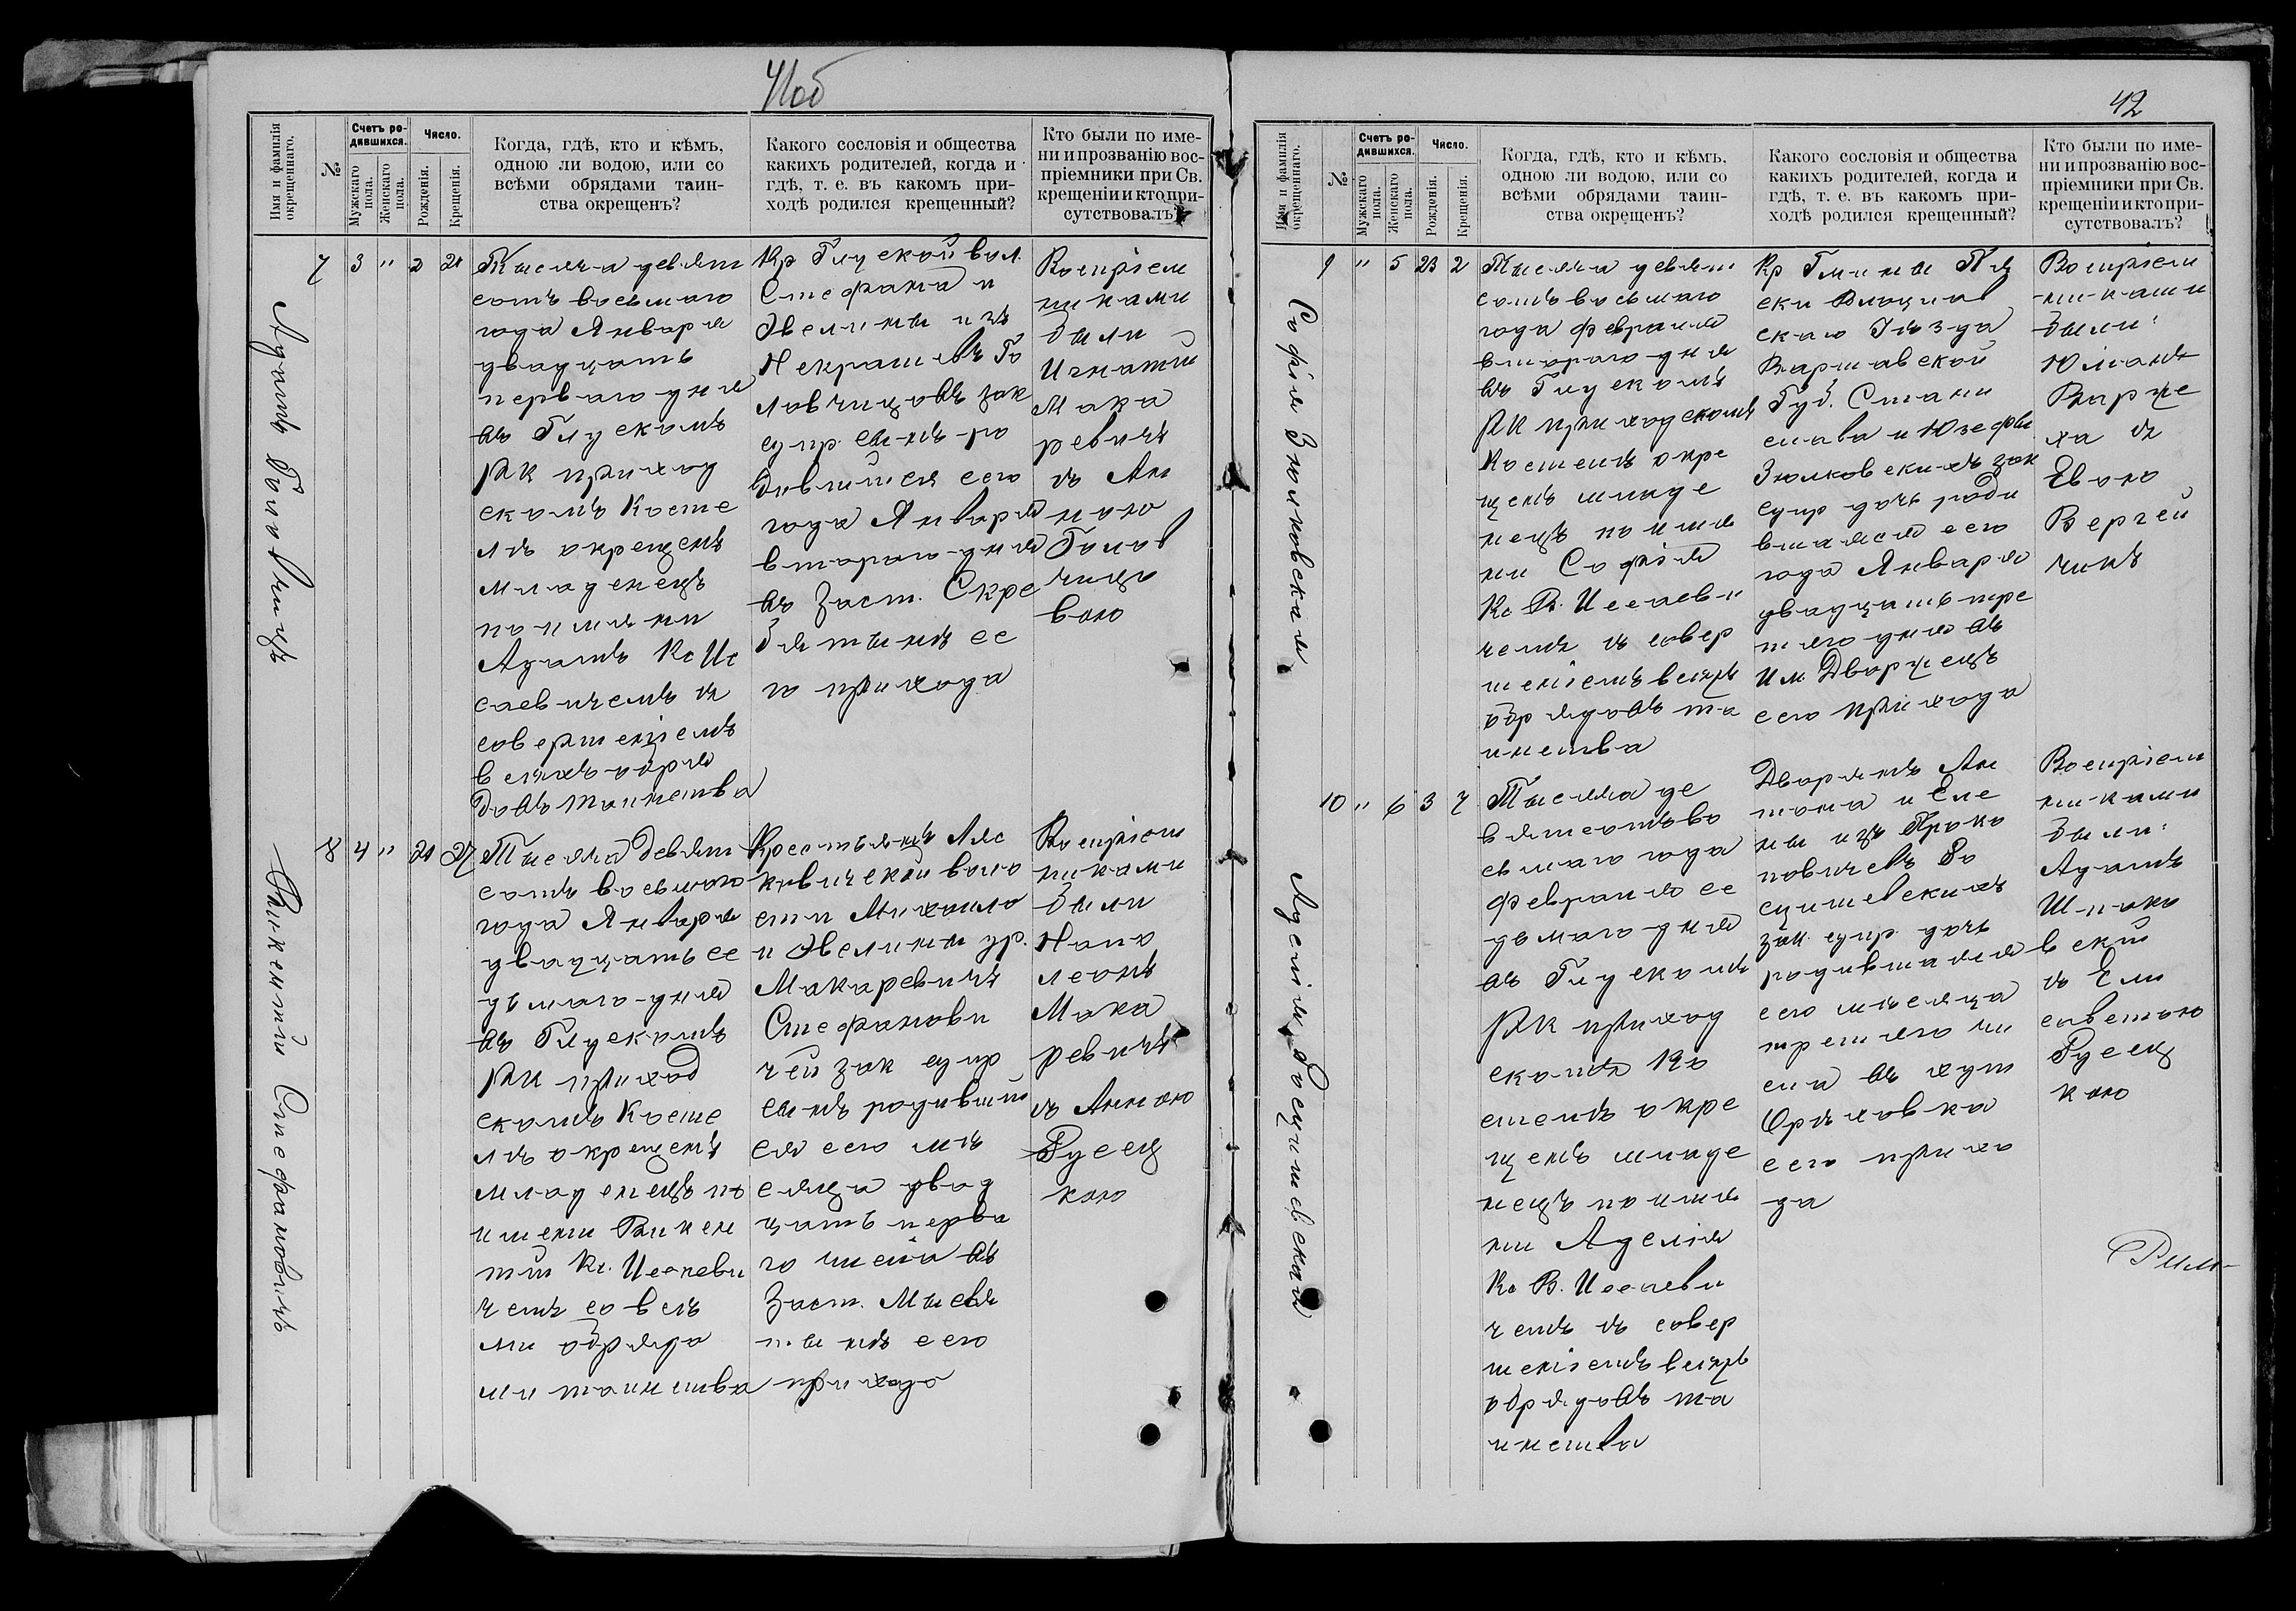 41об
Имя и фамилія окрещеннаго.
№
Счетъ родившихся.
Мужскаго пола.
Женскаго пола.
Число.
Рожденія.
Крещенія.
Когда, гдѣ, кто и кѣмъ,
одною ли водою, или со
всѣми обрядами таин-
ства окрещенъ?
Какого сословія и общества
какихъ родителей, когда и
гдѣ, т. е. въ какомъ при-
ходѣ родился крещенный?
Кто были по име-
ни и прозванію вос-
пріемники при Св.
крещеніи и кто при-
сутствовалъ?
Адамъ Головчицъ
7 3 " 2 21
Тысяча девят
сотъ восьмаго
года Января
двадцать
перваго дня
въ Глускомъ
РК приход
скомъ косте
лѣ окрещенъ
младенецъ
по имени
Адамъ Кс Ис
саевичемъ съ
совершеніемъ
всѣхъ обря
довъ таинства
Кр Глуской вол
Стефана и
Эвелины изъ
Некрашевъ Го
ловчицовъ зак
супр. сынъ ро
дившійся сего
года Января
втораго дня
въ Заст. Скре
бятынѣ се
го прихода
Воспріем
никами
были
Игнатій
Мака
ревичъ
съ Ан
ною
Голов
чицо
вою
Викентій Стефановичъ
8 4 " 21 27
Тысяча девят
сотъ восьмого
года Января
двадцать се
дьмаго дня
въ Глускомъ
РК приход
скомъ косте
лѣ окрещенъ
младенецъ по
имени Викен
тій Кс. Иссаеви
чемъ со всѣ
ми обряда
ми таинства
Крестьянъ Ляс
ковичской воло
сти Михаила
и Эвелины ур.
Макаревичъ
Стефанови
чей зак супр
сынъ родивший
ся сего мѣ
сяца двад
цать перва
го числа въ
Заст.
сего
прихода
Воспріем
никами
были
Напо
леонъ
Мака
ревичъ
съ Анною
Русец
кою
42
Имя и фамилія окрещеннаго.
№
Счетъ родившихся.
Мужскаго пола.
Женскаго пола.
Число.
Рожденія.
Крещенія.
Когда, гдѣ, кто и кѣмъ,
одною ли водою, или со
всѣми обрядами таин-
ства окрещенъ?
Какого сословія и общества
какихъ родителей, когда и
гдѣ, т. е. въ какомъ при-
ходѣ родился крещенный?
Кто были по име-
ни и прозванію вос-
пріемники при Св.
крещеніи и кто при-
сутствовалъ?
Софія Зюлковская
9 " 5 23 2
Тысяча девят
сотъ восьмаго
года февраля
втораго дня
въ Глускомъ
РК приходскомъ
костелѣ окре
щенъ младе
нецъ по име
ни Софія
Кс В. Иссаеви
чемъ съ совер
шеніемъ всѣхъ
обрядовъ та
инства
Кр Гмины Пя
ски Влоцлав
скаго Уѣзда
Варшавской
Губ. Стани
слава и Юзефы
Зюлковскихъ зак
супр дочь роди
вшаяся сего
года Января
двадцать тре
тяго дня въ
Им Дворжецъ
сего прихода
Воспріем
никами
были:
Юліанъ
Варже
ха съ
Евою
Верчей
чикъ
Аделія Росцишевская
10 " 6 3 7
Тысяча де
вятсотъ во
сьмаго года
февраля се
дьмаго дня
въ Глускомъ
РК приход
скомъ ко
стелѣ окре
щенъ младе
нецъ по име
ни Аделія
Кс В. Иссаеви
чемъ съ совер
шеніемъ всѣхъ
обрядовъ та
инства
Дворянъ Ан
тона и Еле
ны изъ Проко
повичевъ Ро
сцишевскихъ
зак. супр. дочь
родившаяся
сего мѣсяца
третяго чи
сла въ хут
Орѣховка
сего прихо
да
Воспріем
никами
были:
Адамъ
Шпако
вскій
съ Ели
саветою
Русец
кою
Рим-